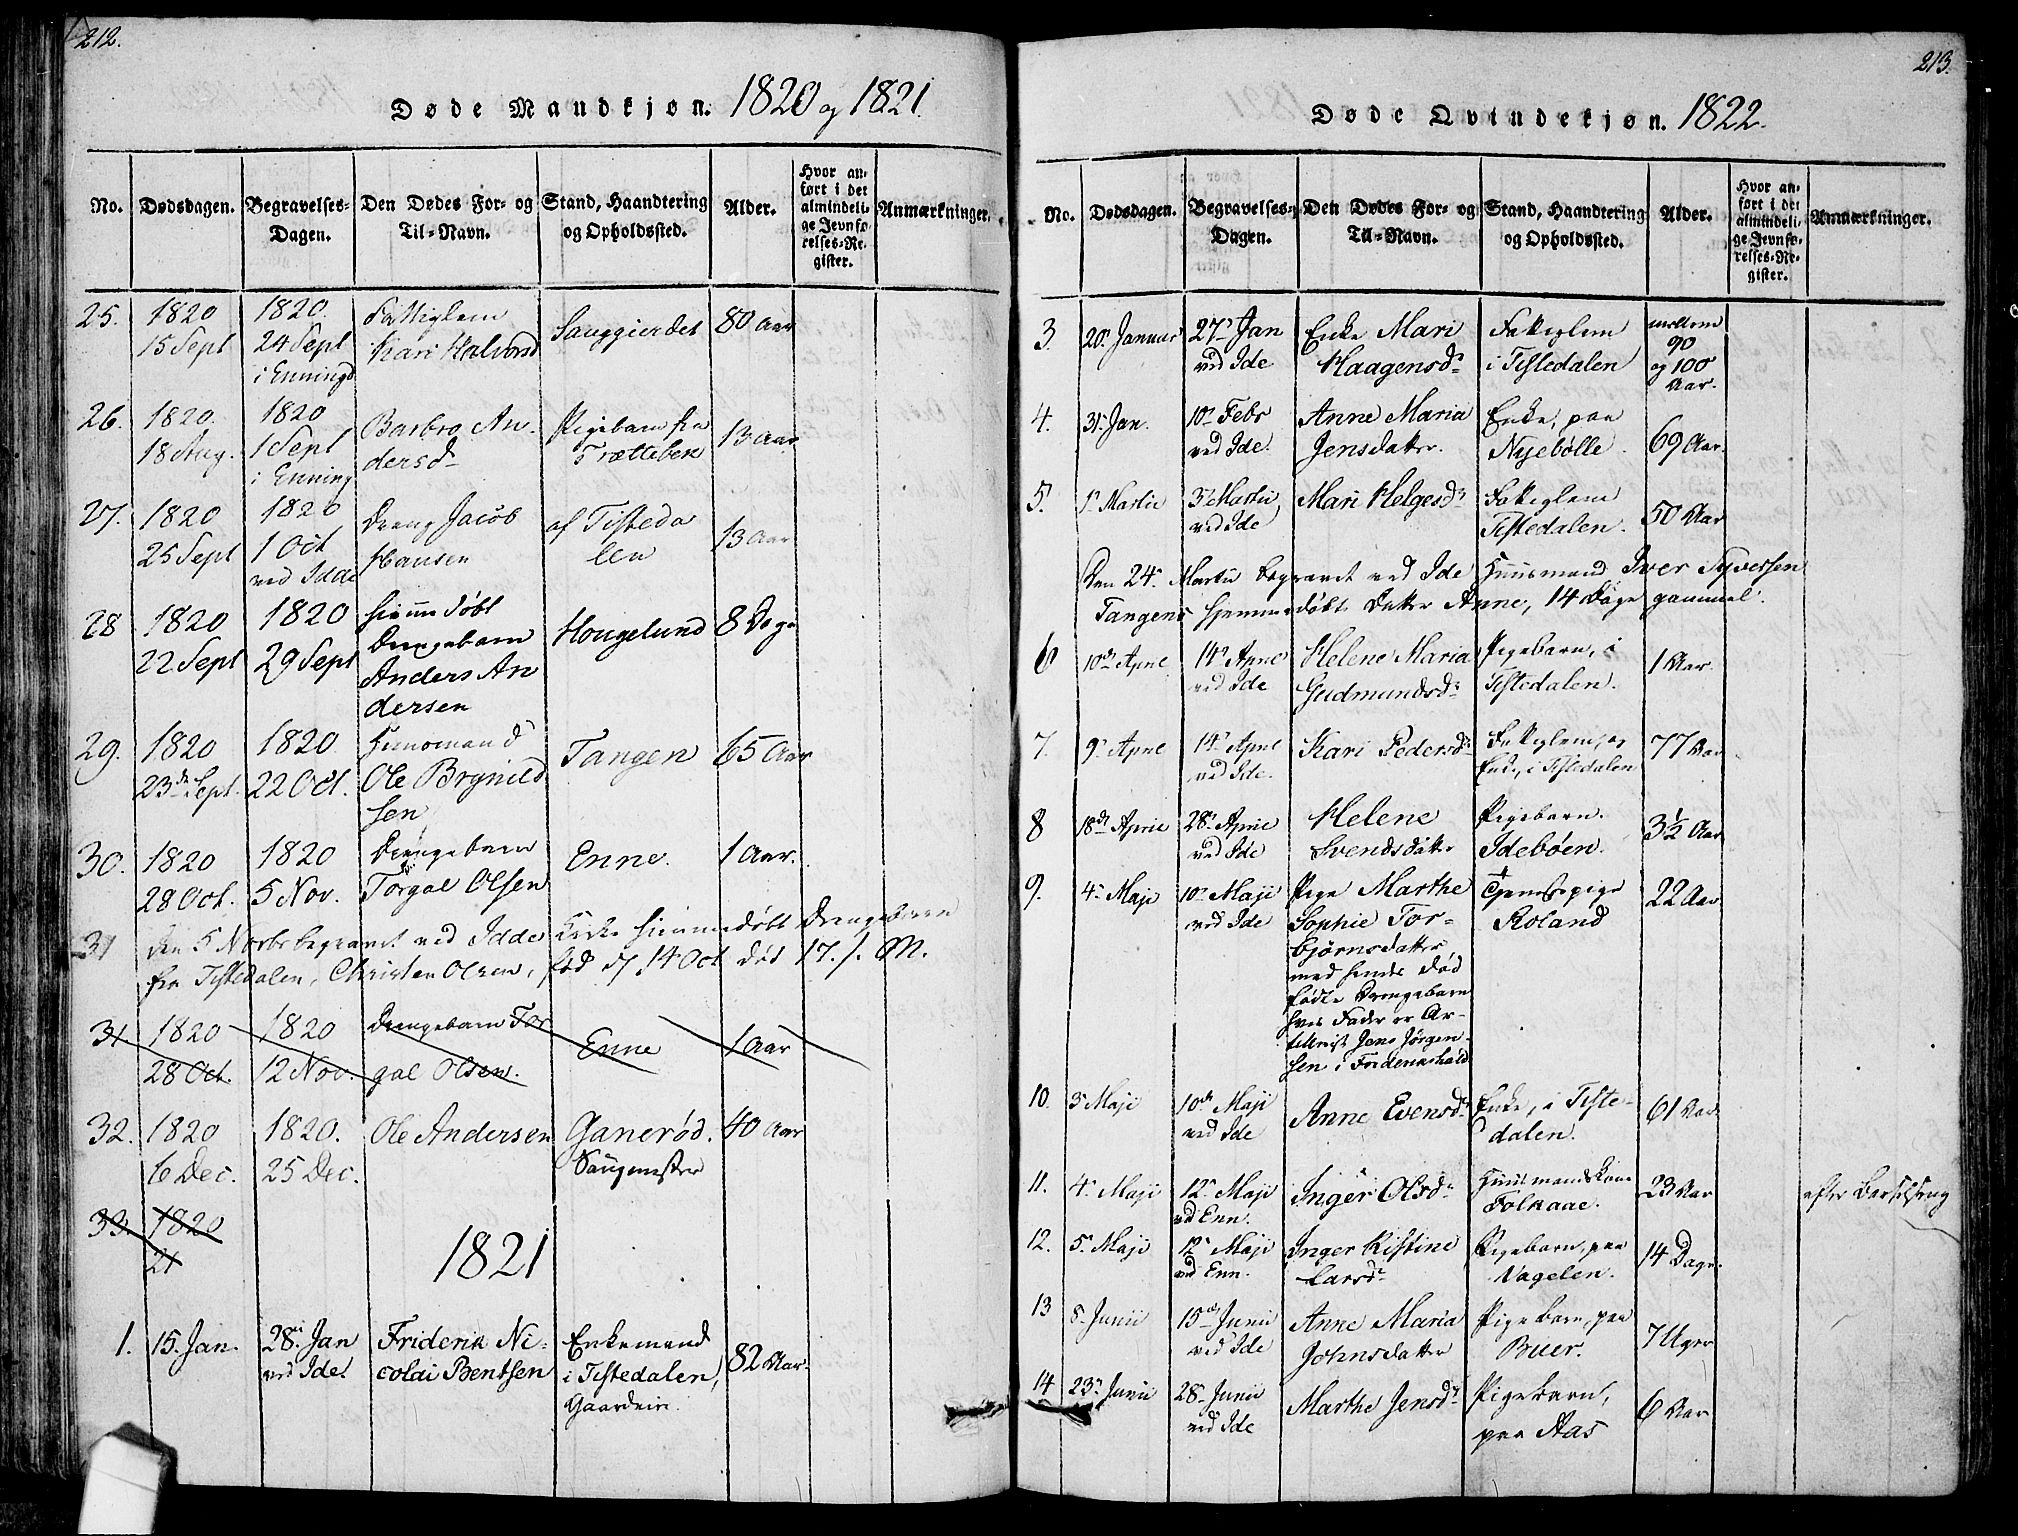 212.
Døde Mandkjøn. 1820 og 1821.
No. Dødsdagen. Begravelses-Dagen. Den Dødes For- og Til-Navn. Stand, Haandtering og Opholdssted. Alder. Hvor anført i det almindelige Jevnførelses-Register. Anmærkninger.
25. 1820 1820. Fattiglem Sauggierdet 80 Aar
15 Sept 24 Sept Kari Halvorsd
i Enningd
26. 1820. 1820 Barbro An- Pigebarn fra 13 Aar
18 Aug. 1 Sept dersd Trætteben
i Enning
27. 1820 1820 Dreng Jacob af Tisteda 13 Aar
25 Sept 1 Oct Hansen len
ved Idde
28 1820 1820 hiemmedøbt Hougelund 8 Dage
22 Sept 29 Sept Drengebarn
Anders An
dersen
29. 1820 1820 Huusmand Tangen 65 Aar
23de Sept. 22 Oct. Ole Brynild
sen
30. 1820 1820 Drengebarn Enne. 1 Aar.
28 Oct. 5 Nov. Torgal Olsen
31 den 5 Novbr begravet ved Idde Kirke hiemmedøbt Drengebarn
fra Tistedalen, Christen Olsen, fød d 14 Oct død 17. s. M.
31. 1820 1820 Drengebarn Tor Enne 1 Aar
28 Oct. 12 Nov. gal Olsen.
32. 1820 1820. Ole Andersen Ganerød. 40 Aar
6 Dec. 25 Dec. Saugmester
33. 1820
21
1821
1. 15. Jan. 28. Jan Friderik Ni- Enkemand 82 Aar.
ved Idet colai Bentsen i Tistedalen,
213.
Døde Qvindekjøn. 1822.
No. Dødsdagen. Begravelses-Dagen. Den Dødes For- og Til-Navn. Stand, Haandtering og Opholdssted. Alder. Hvor anført i det almindelige Jevnførelses-Register. Anmærkninger.
3. 20. Januar 27 Jan Enke Mari Fattiglem mellem
ved Ide Haagensd. i Tistedalen 90
og 100
Aar.
4. 31. Jan. 10 Febr Anne Maria Enke, paa 69 Aar.
ved Ide. Jensdatter. Nyebølle.
5. 1. Martii 3 Martii Mari Helgesd. Fattiglem 50 Aar
ved Ide Tistedalen.
Den 24. Martii begravet ved Ide Huusmand Iver Syversen
Tangens hjemmedøbt Datter Anne, 14 Dage gammel.
6 10de April 14 April Helene Maria Pigebarn, i 1 Aar.
ved Ide Gudmundsd. Tistedalen.
7. 9. April 14. April Kari Pedersd. Fattiglem, og 77 Aar
ved Ide. Enke, i Tistedalen
8 18de April 28. April Helene Pigebarn. 3½ Aar
ved Ide Svendsdatter Idebøen.
9. 4. Maji 10. Maji Pige Marthe Tjenestepige 22 Aar
ved Ide Sophie Tor- Roland
bjørnsdatter
med hendes død
fødte Drengebarn
hvis Fader er Ar-
tillerist Jens Jørgen-
sen i Fredrikshald
10. 3 Maji 10de Maji Anne Evensd. Enke, i Tiste- 61 Aar
ved Ide dalen.
11. 4. Maji 12. Maji Inger Olsd. Huusmandskone 23 Aar efter Barselseng
ved Enn. Folkaae.
12. 5. Maji 12. Maji Inger Kistine Pigebarn, paa 14 Dage
ved Enn. Larsd. Vagelen.
13 8. Junii 15de Junii Anne Maria Pigebarn, paa 7 Uger
ved Ide Johnsdatter Buer.
14 23. Junii 28. Junii Marthe Jensd. Pigebarn, 6 Aar
ved Ide paa Aas